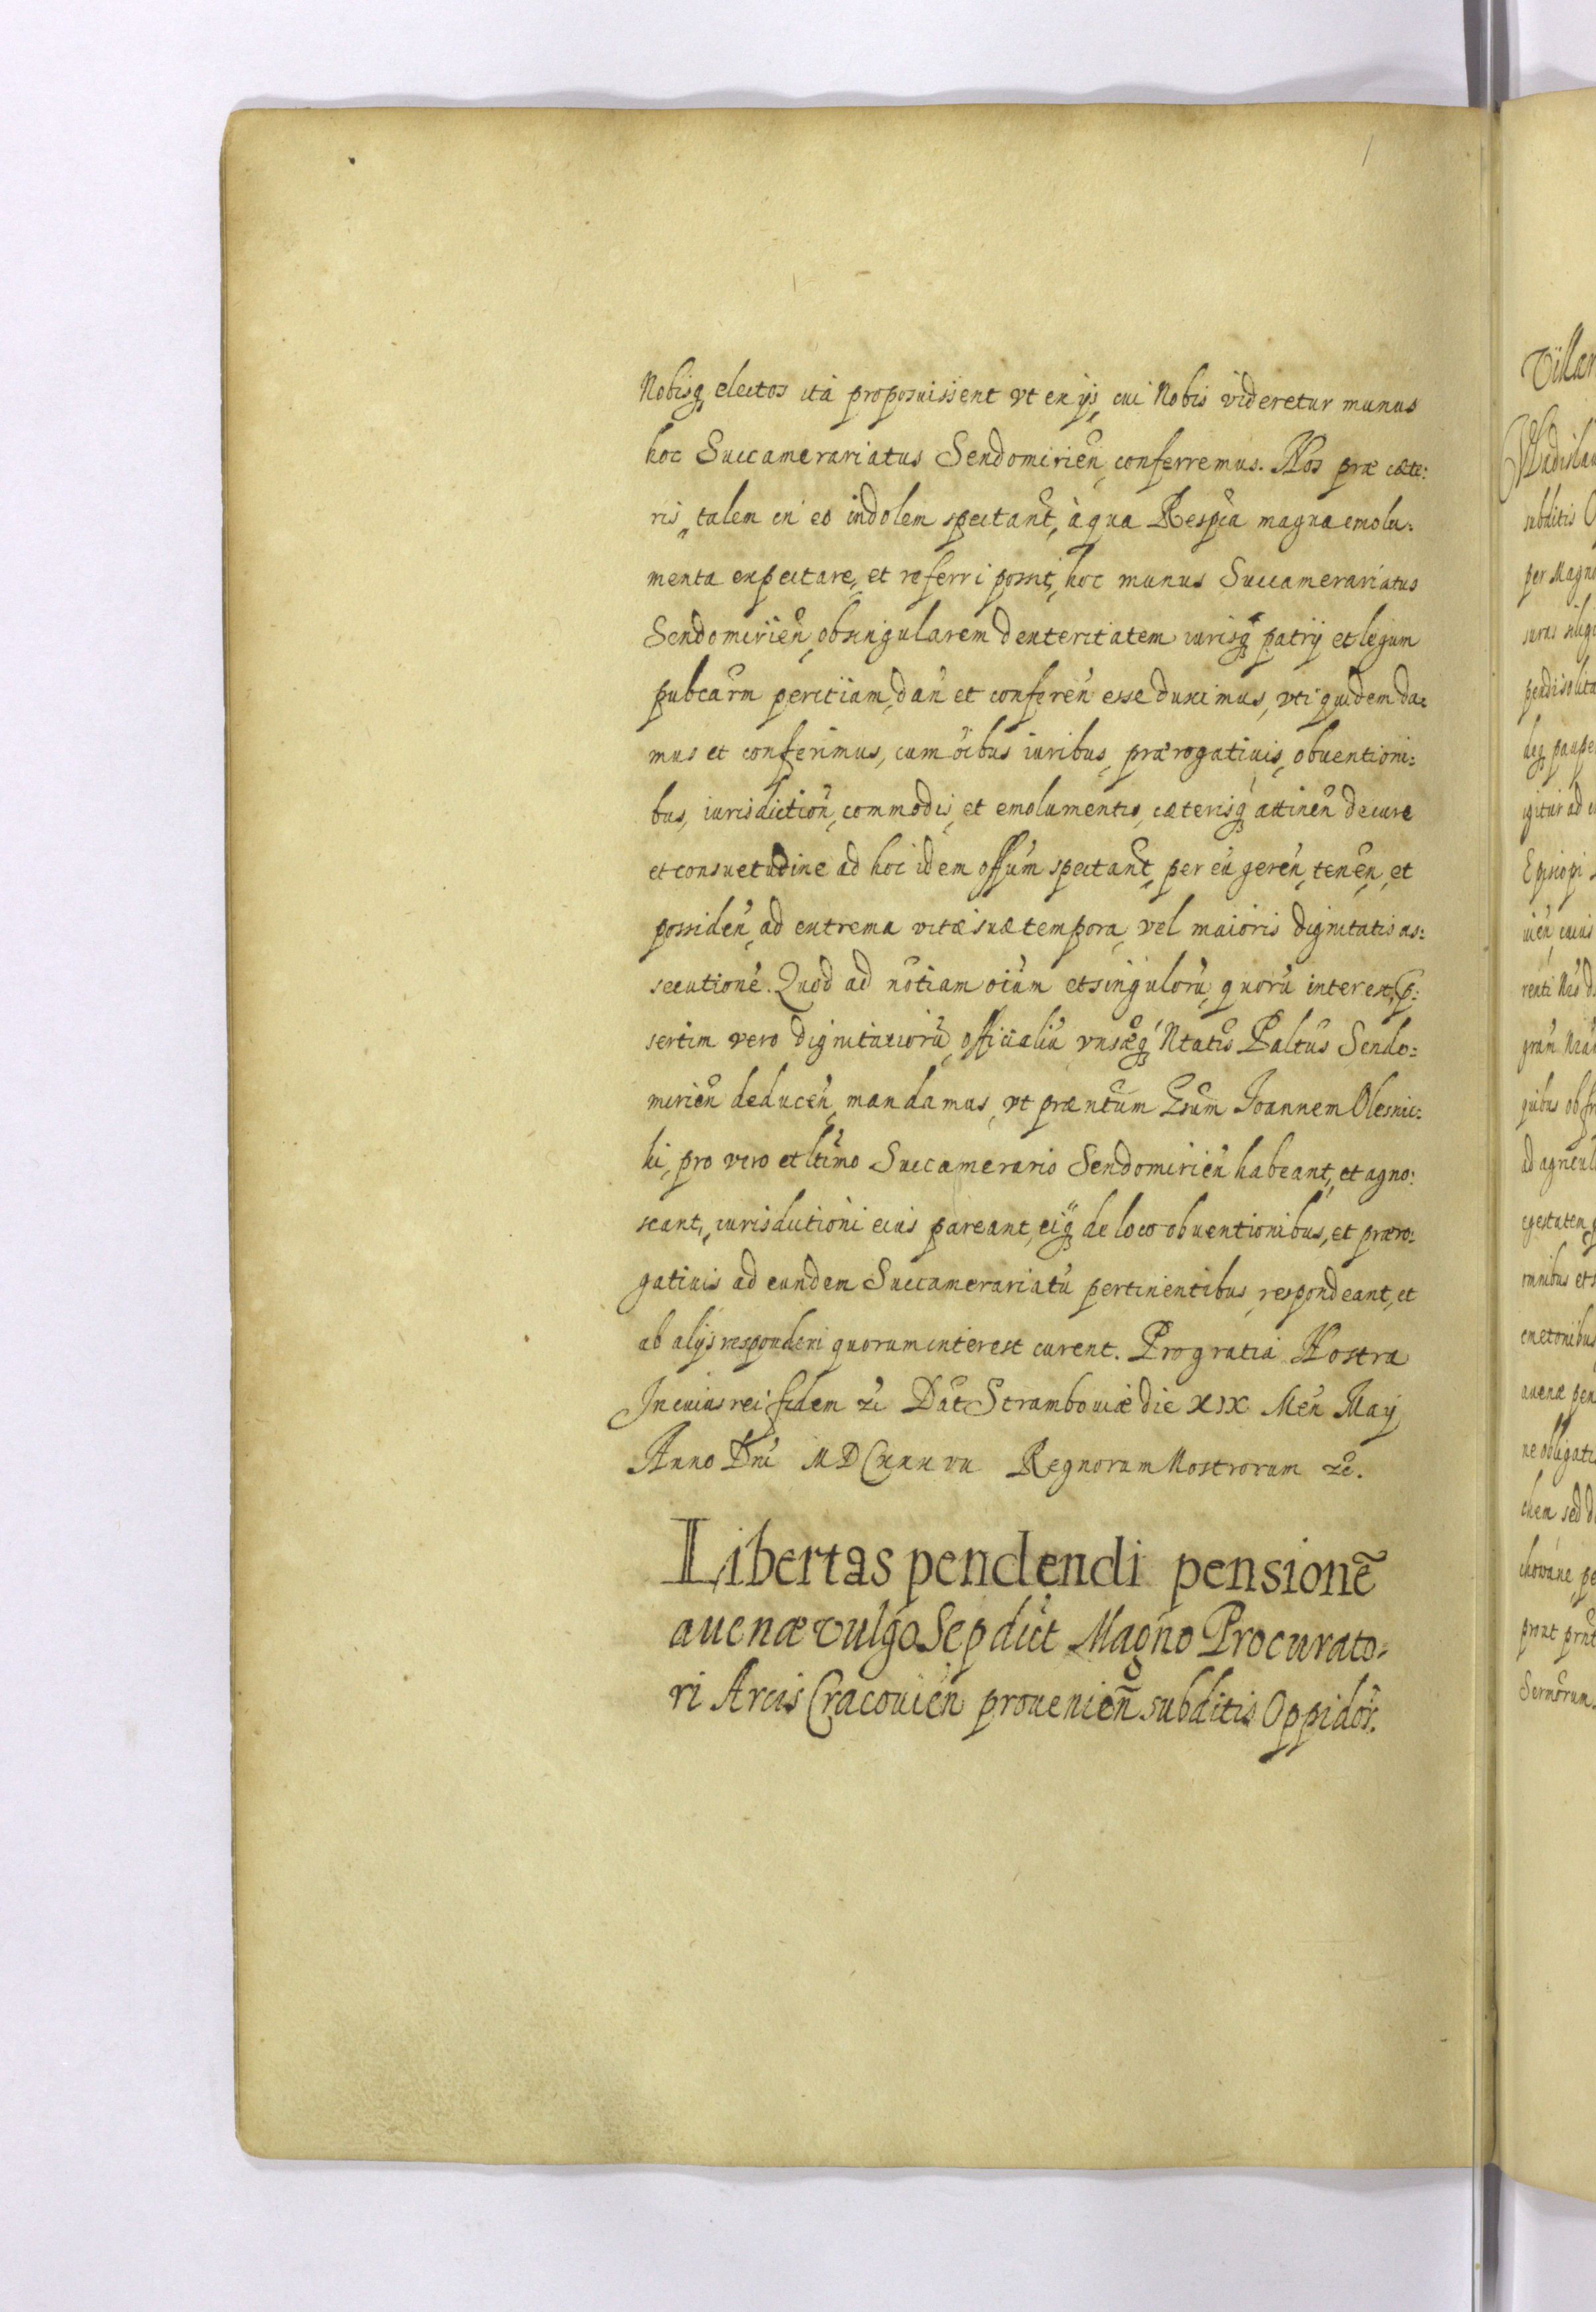 Nobisq, electos ita proposuissent vt ex ijs, cui Nobis videretur munus
hoc Succamerariatus Sendomirien, conferremus. Nos præ cæte:
ris, talem in eo indolem spectant, à qua Respca magna emolu:
menta expectare, et referri possit, hoc munus Succamerariatus
Sendomirien, ob singularem dexteritatem iurisq patrij et legum
pubcarm peritiam, dan et conferen esse duximus, vti quidem da:
mus et conferimus, cum oibus iuribus, prærogatiuis, obuentioni:
bus, iurisdiction, commodis, et emolumentis, cæterisq attinen de iure
et consuetudine ad hoc idem offum spectant, per eu geren, tenen, et
possiden, ad extrema vitæ suæ tempora, vel maioris dignitatis as:
secutione. Quod ad notiam oium et singuloru, quoru interest, p:
sertim vero dignitarioru, officialiu vnsæq Ntatis Paltus Sendo:
mirien deducen, mandamus, vt præntum Gsum Joannem Olesnic:
ki, pro vero et ltimo Succamerario Sendomirien habeant, et agno:
scant, iurisdictioni eius pareant, eiq de loco obuentionibus, et præro:
gatiuis ad eundem Succamerariatu pertinentibus, respondeant, et
ab alijs responderi quorum interest curent. Pro gratia Nostra
In cuius rei fidem zc Dat Strambouiæ die XIX Men Maij
Anno Dni MDCxxxvii Regnorum Nostrorum zc.
Libertas pendendi pensionē
auenæ vulgo Sep dict Magno Procurato:
ri Arcis Cracouien prouenien subditis Oppidor.
Villar
Vladisla
subditis
per Magn
pendi solita
deq paupe
igitur ad
Episcopi
quibus ob
ad agricul
egestatem
omnibus et
cmetonibus
auenæ pen
ne obligat
prout